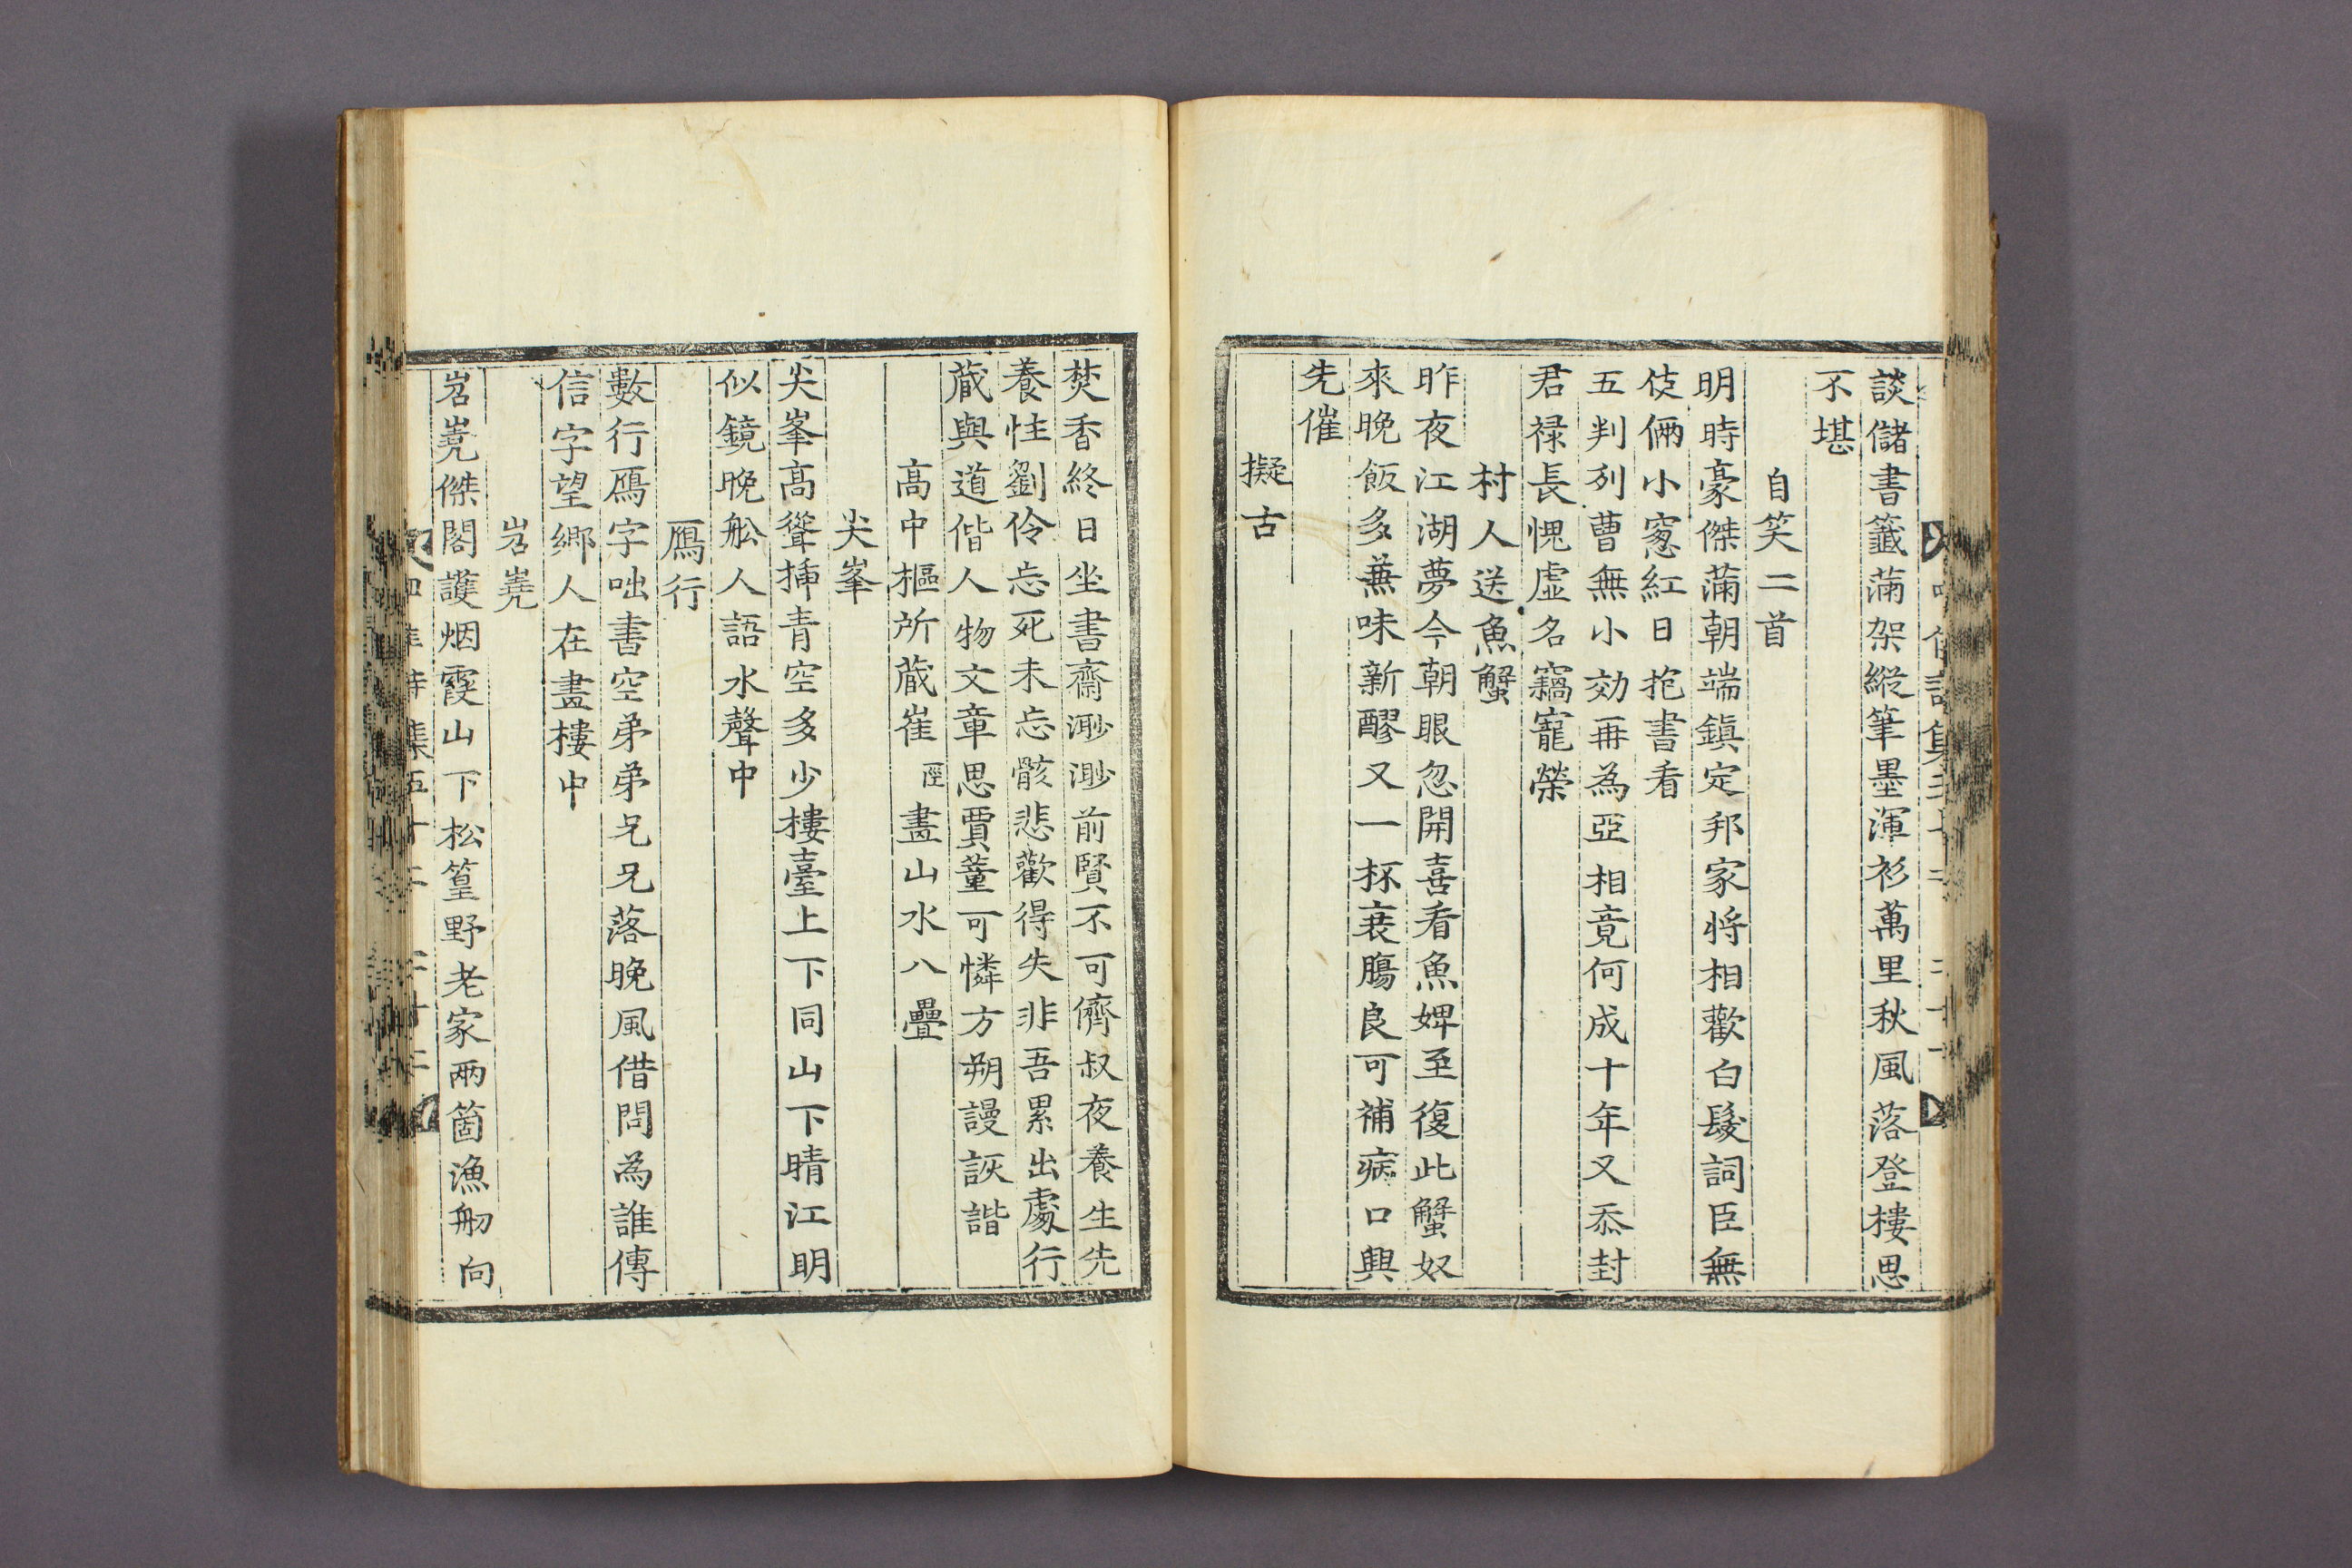 談儲書籤滿架縱筆墨渾衫萬里秋風落登樓思
不堪
自笑二首
明時豪傑滿朝端鎭定邦家将相歡白髮詞臣無
伎倆小窻紅日抱書看
五判列曹無小効再為亞相竟何成十年又忝封
君禄長愧虛名竊寵榮
村人送魚蟹
昨夜江湖夢今朝眼忽開喜看魚婢至復此蟹奴
來晚飯多兼味新醪又一杯衰膓良可補病口興
先催
擬古
焚香終日坐書齋渺渺前賢不可儕叔夜養生先
養性劉伶忘死未忘骸悲歡得失非吾累出處行
蔵與道偕人物文章思賈董可憐方朔謾詼諧
高中樞所蔵崔涇畫山水八疊
尖峯
尖峯高聳揷青空多少樓臺上下同山下晴江明
似鏡晚舩人語水聲中
鴈行
數行鴈字咄書空弟弟兄兄落晚風借問為誰傳
信字望鄕人在畫樓中
岧嶤
岧嶤傑閣護烟霞山下松篁野老家兩箇漁舠向
四佳詩集五十二 二十二